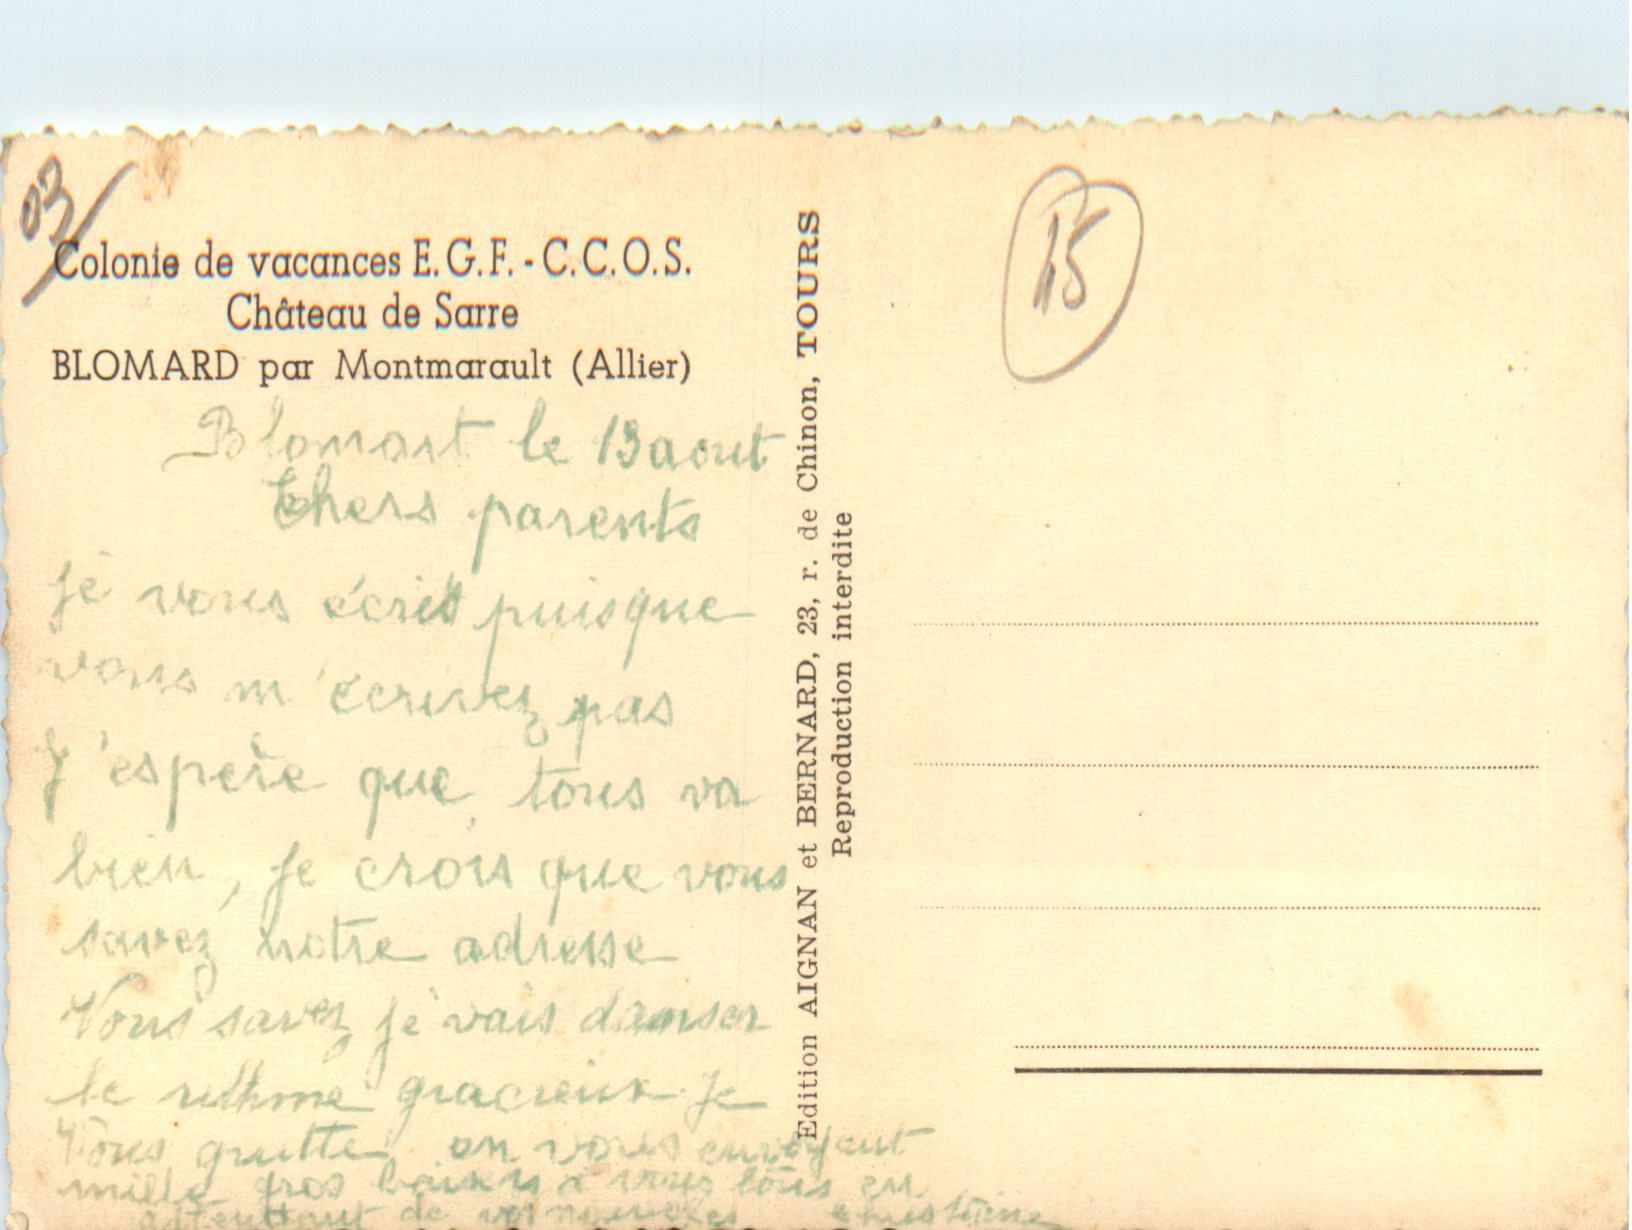 03
Colonie de vacances E.G.F. - C.C.O.S.
Château de Sarre
BLOMARD par Montmarault (Allier)
Blomart le 13 aout
Chers parents
Je vous écris puisque
vous m'écrivez pas
J'espère que tous va
bien, Je crois que vous
savez notre adresse
Vous savez je vais danser
le rithme gracieux Je
Vous quitte en vous envoyent
mille gros baisers à vous tous en
attendant de vos nouvelles Christiane
Edition AIGNAN et BERNARD, 23, r. de Chinon, TOURS
Reproduction interdite
15